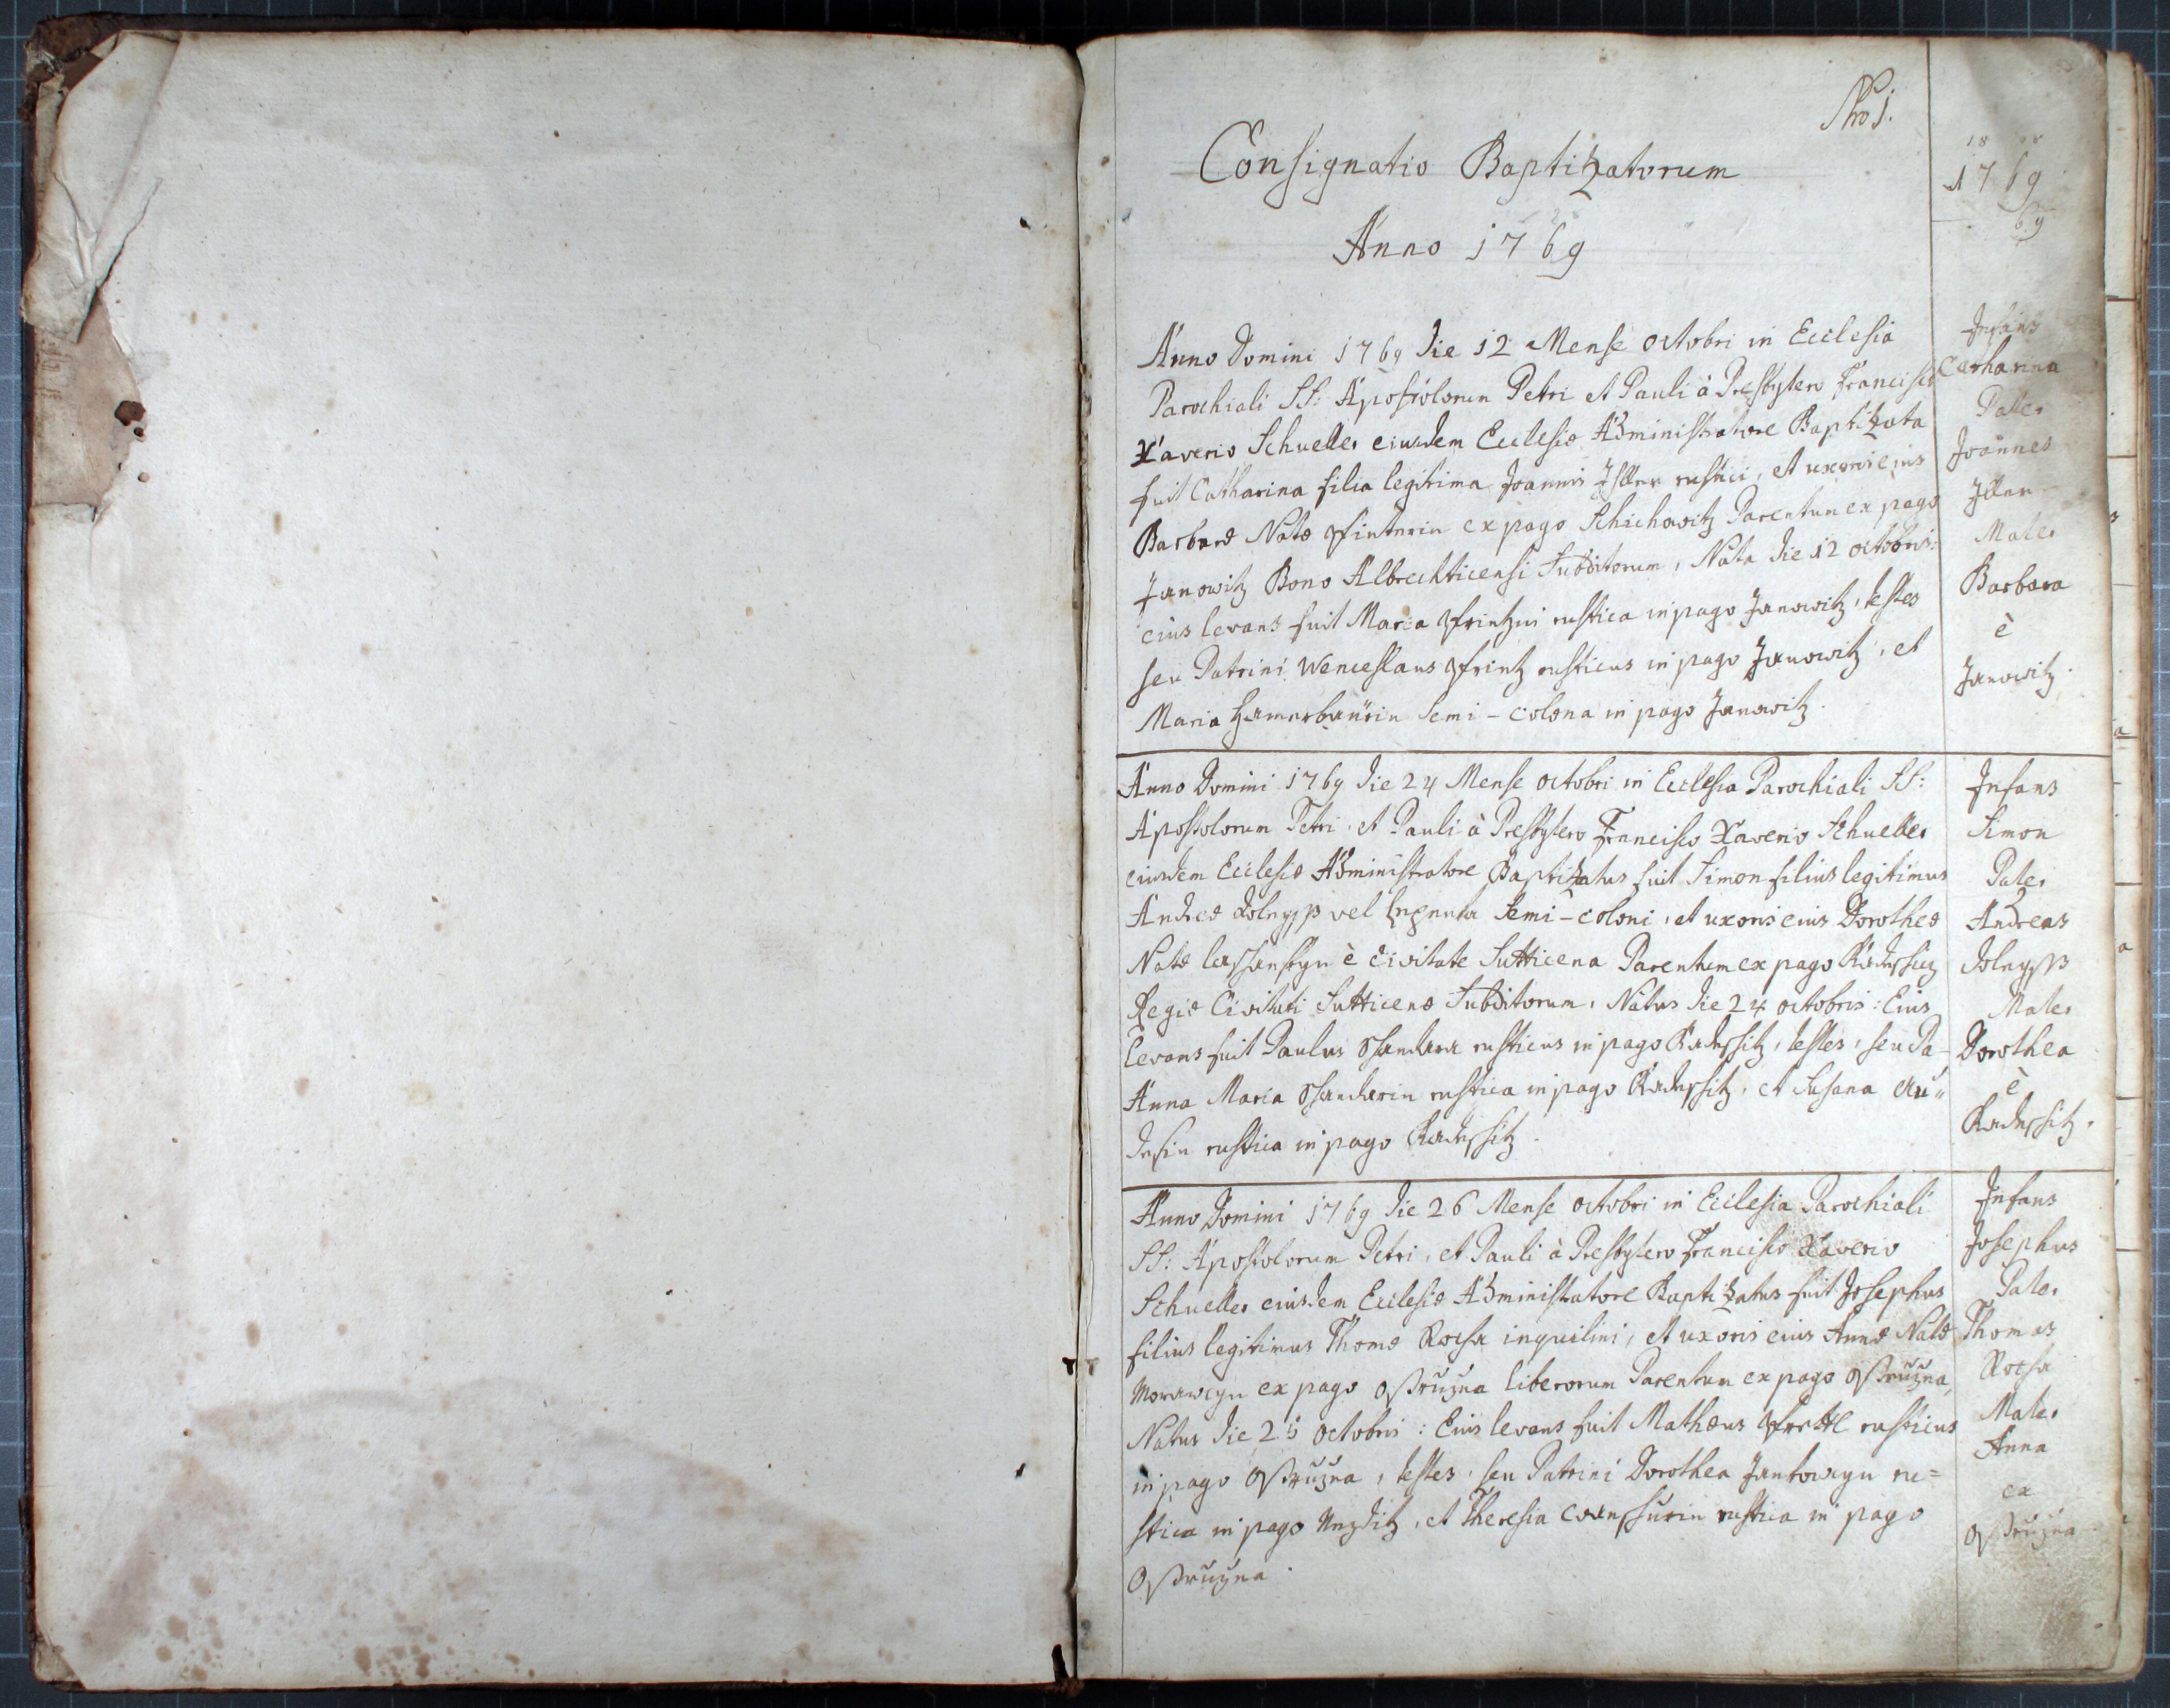 Consignatio Baptizatorum
Anno 1769
1769
69
Anno Domini 1769 die 12 Mense octobri in Ecclesia
Parochiali SS: Apostolorum Petri et Pauli à Presbytero Francisco
Xaverio Schueller eiusdem Ecclesiæ Administratore Baptizata
fuit Catharina filia legitima Joannis rustici, et uxoris eius
Barbaræ Natæ ex pago Schichowitz Parentum ex pago
Janowitz Bono Albrechticensi Subditorum, Nata die 12 octobris:
eius levans fuit Maria rustica in pago Janowitz, testes
seu Patrini Wenceslaus rusticus in pago Janowitz, et
Maria semi-colona in pago Janowitz.
Infans
Catharina
Pater
Joannes
Mater
Barbara
è
Janowitz.
Anno Domini 1769 die 24 Mense octobri in Ecclesia Parochiali SS:
Apostolorum Petri, et Pauli à Presbytero Francisco Xaverio Schueller
eiusdem Ecclesiæ Administratore Baptizatus fuit Simon filius legitimus
Andreæ vel semi-coloni, et uxoris eius Dorotheæ
Natæ è civitate Sutticena Parentum ex pago
Regiæ Civitati Sutticenæ Subditorum, Natus die 24 octobris: Eius
levans fuit Paulus rusticus in pago Kadessitz, testes, seu Pa-
Anna Maria rustica in pago Kadessitz, et Susana
rustica in pago Kadessitz.
Infans
Simon
Pater
Andreas
Mater
Dorothea
è
Kadessitz.
Anno Domini 1769 die 26 Mense octobri in Ecclesia Parochiali
SS: Apostolorum Petri, et Pauli à Presbytero Francisco Xaverio
Schueller eiusdem Ecclesiæ Administratore Baptizatus fuit Josephus
filius legitimus Thomæ inquilini, et uxoris eius Annæ Natæ
ex pago Ostružna liberorum Parentum ex pago Ostružna,
Natus die 25 octobris: Eius levans fuit Mathæus rusticus
in pago Ostružna, testes, seu Patrini Dorothea ru=
stica in pago Nezditz, et Theresia rustica in pago
Ostružna.
Infans
Josephus
Pater
Thomas
Mater
Anna
ex
Ostružna